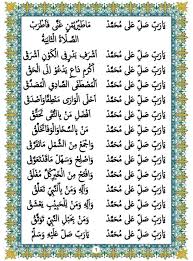 يَارَبِّ صَلِّ عَلَى مُحَمَّدْ مَاطَيْرٌ يُمْنٍ غَنَّى فَأَطْرَبْ
الصَّلَاةُ الثَّانِيَةُ
يَارَبِّ صَلِّ عَلَى مُحَمَّدْ أَشْرَفِ بَدْرٍ فِي الْكَوْنِ أَشْرَقْ
يَارَبِّ صَلِّ عَلَى مُحَمَّدْ أَكْرَمِ دَاعٍ يَدْعُو إِلَى الْحَقْ
يَارَبِّ صَلِّ عَلَى مُحَمَّدْ الْمُصْطَفَى الصَّادِقِ الْمُصَدَّقْ
يَارَبِّ صَلِّ عَلَى مُحَمَّدْ أَحْلَى الْوَرَى مَنْطِقًا وَأَصْدَقْ
يَارَبِّ صَلِّ عَلَى مُحَمَّدْ أَفْضَلِ مَنْ بِالتُّقَى تَحَقَّقْ
يَارَبِّ صَلِّ عَلَى مُحَمَّدْ مَنْ بِالسَّخَا وَالْوَفَا تَخَلَّقْ
يَارَبِّ صَلِّ عَلَى مُحَمَّدْ وَاجْمَعْ مِنَ الشَّمْلِ مَا تَفَرَّقْ
يَارَبِّ صَلِّ عَلَى مُحَمَّدْ وَأَصْلِحْ وَسَهِّلْ مَا قَدْ تَعَوَّقْ
يَارَبِّ صَلِّ عَلَى مُحَمَّدْ وَافْتَحْ مِنَ الْخَيْرِ كُلَّ مُغْلَقْ
يَارَبِّ صَلِّ عَلَى مُحَمَّدْ وَآلِهِ وَمَنْ بِالنَّبِيِّ تَعَلَّقْ
يَارَبِّ صَلِّ عَلَى مُحَمَّدْ وَآلِهِ وَمَنْ لِلْحَبِيبِ يَعْشَقْ
يَارَبِّ صَلِّ عَلَى مُحَمَّدْ وَمَنْ بِحَبْلِ النَّبِيِّ تَوَثَّقْ
يَارَبِّ صَلِّ عَلَى مُحَمَّدْ يَارَبِّ صَلِّ عَلَيْهِ وَسَلِّمْ